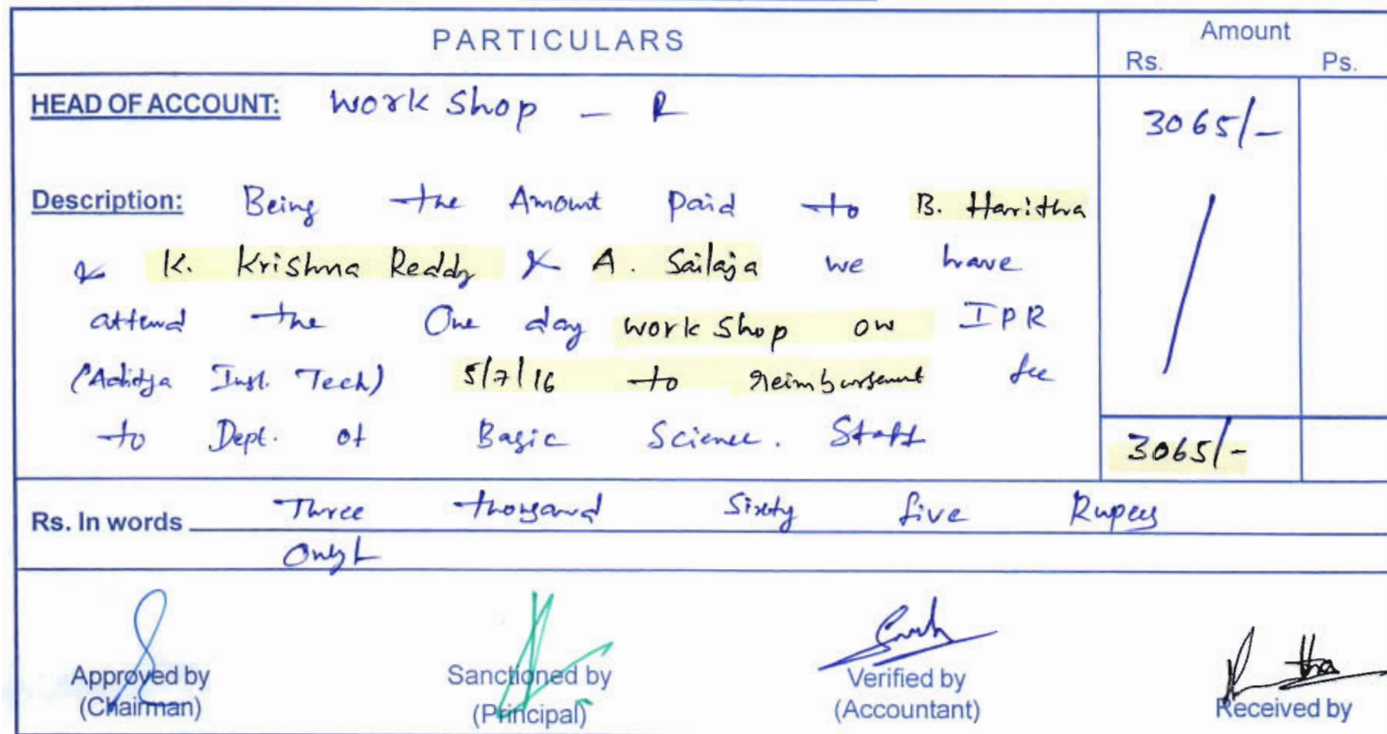 PARTICULARS
Amount
Rs. Ps.
HEAD OF ACCOUNT: Work Shop - R
3065/-
Description: Being the Amount Paid to B. Haritha
& K. Krishna Reddy & A. Sailaja we have
attend the One day work shop on IPR
(Aditya Inst. Tech) 5/7/16 to reimbursement fee
to Dept. of Basic Science. Staff
3065/-
Rs. In words Three thousand Sixty five Rupees
Only
Approved by
(Chairman)
Sanctioned by
(Principal)
Verified by
(Accountant)
Received by